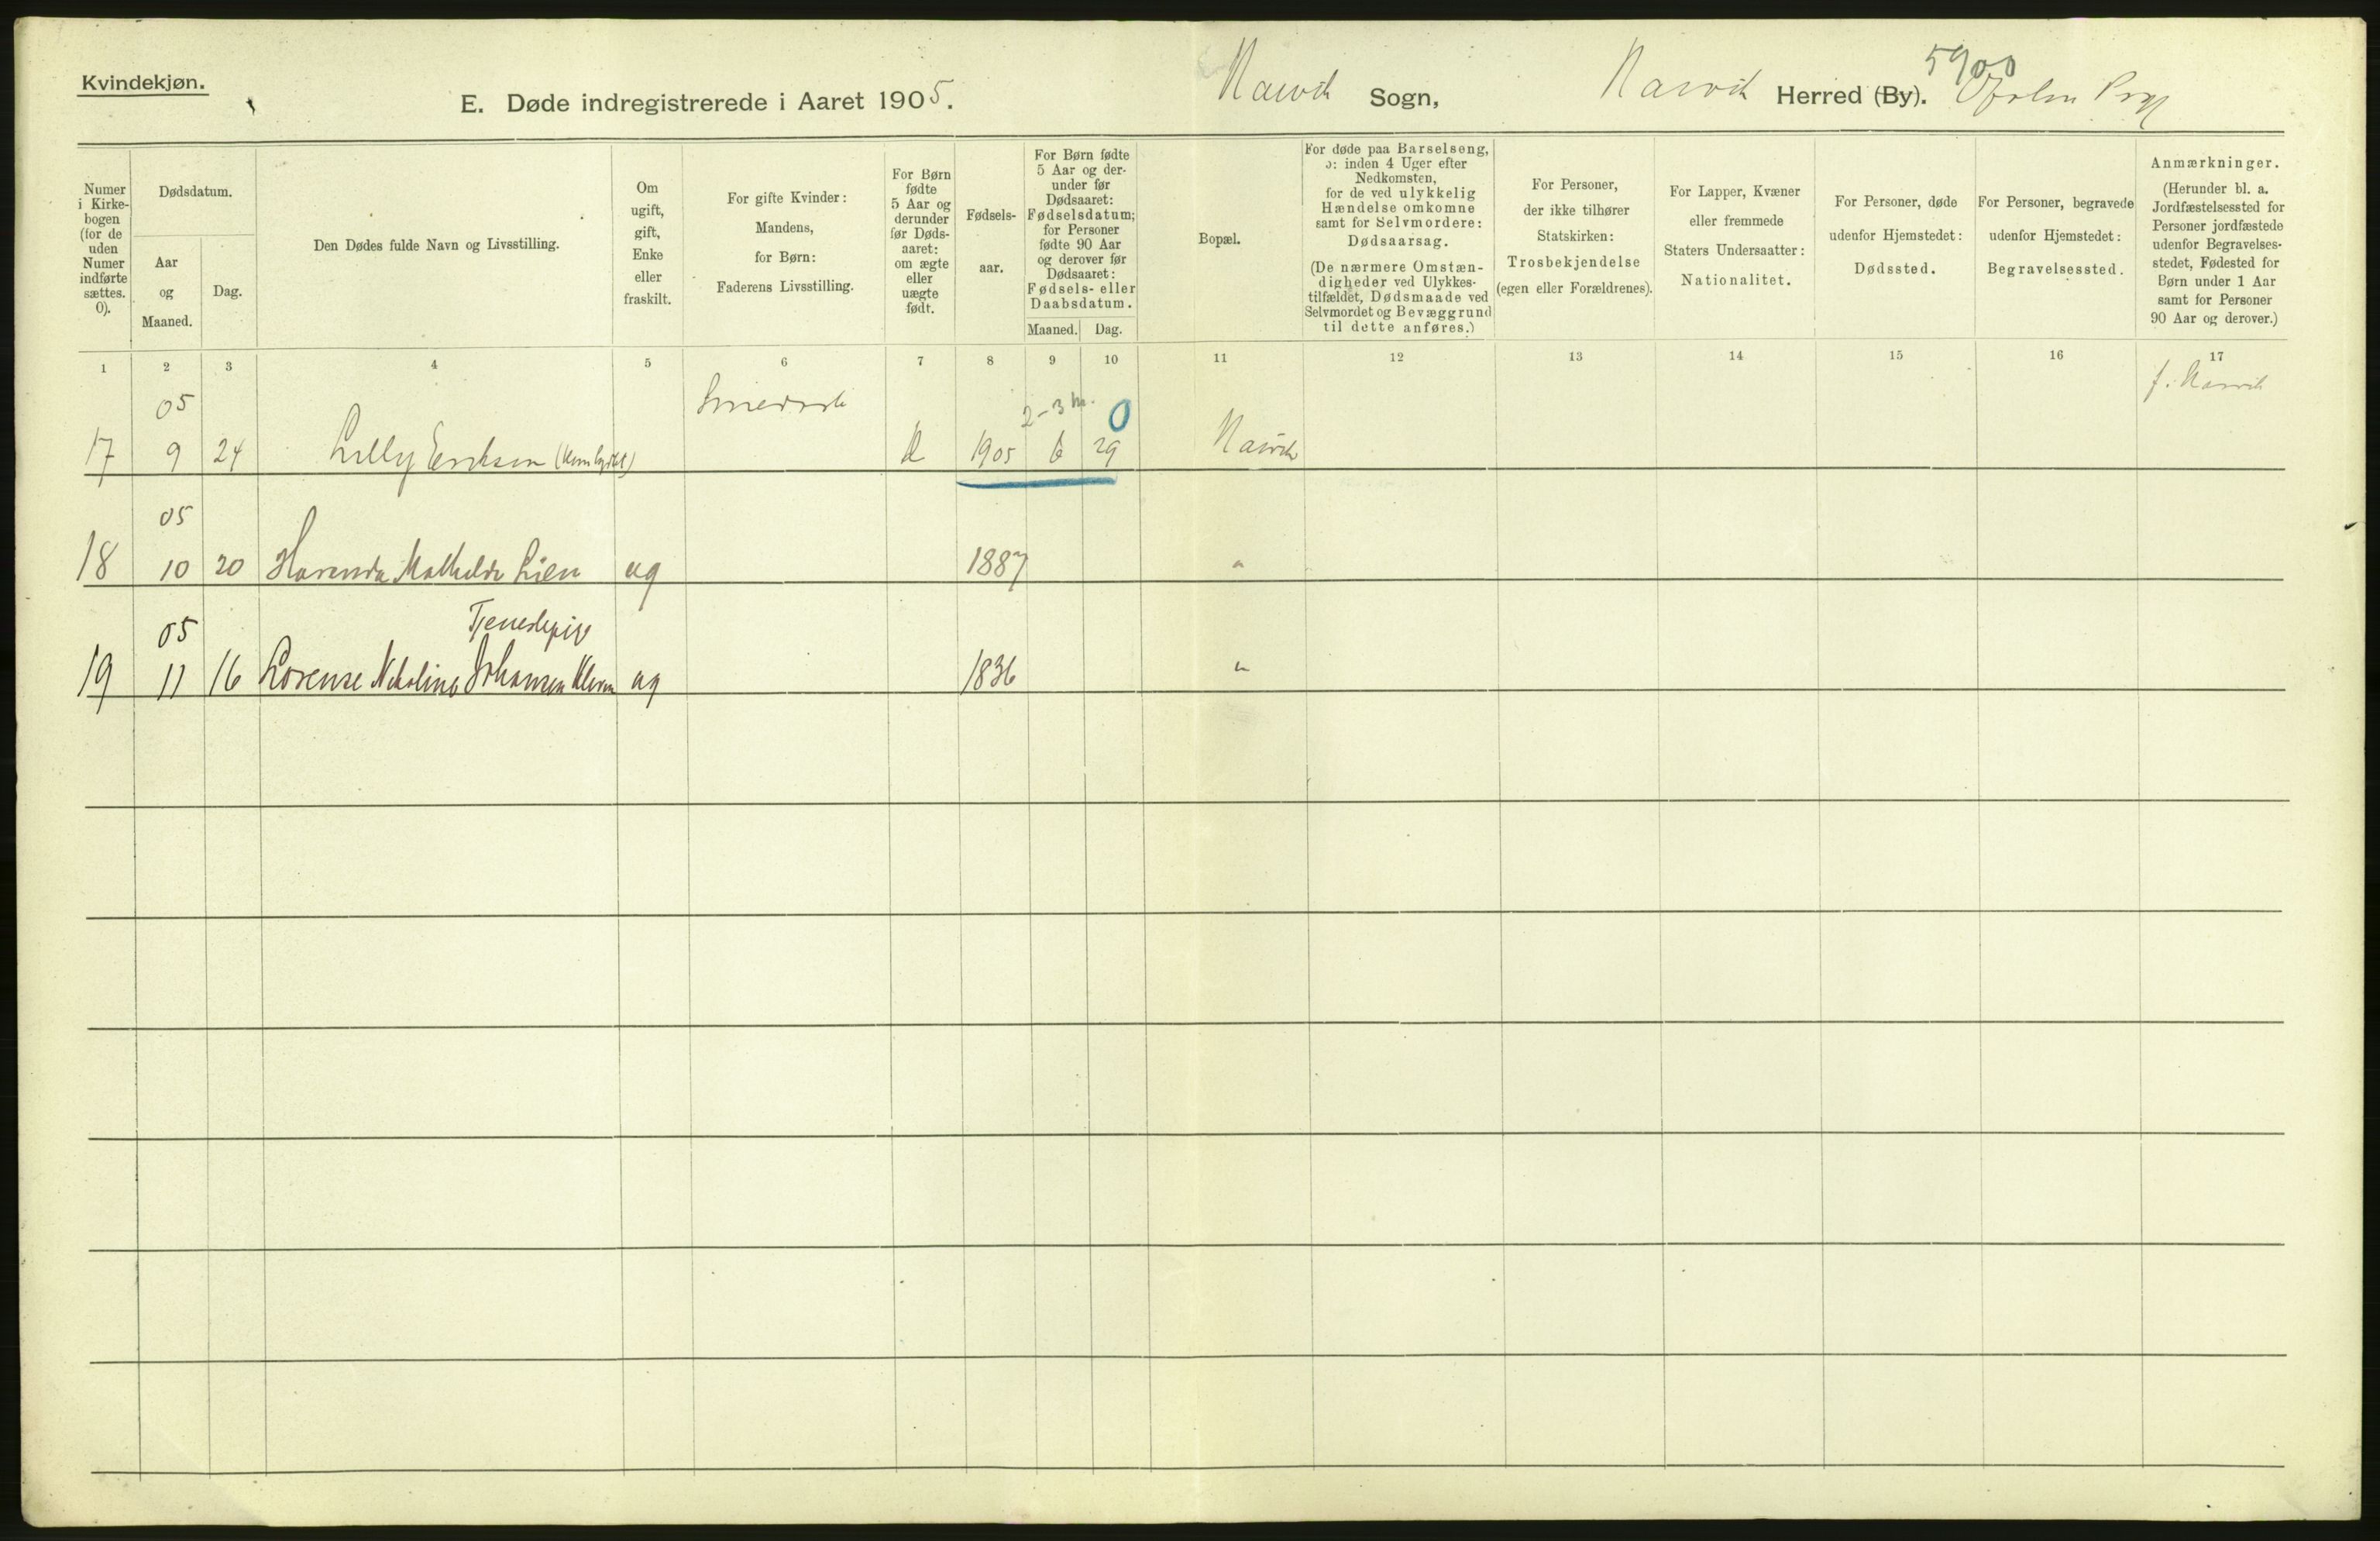 Kvindekjøn.
E. Døde indregistrerede i Aaret 1905. Narvik Sogn, Narvik Herred (By). 5900
Numer i Kirkebogen (for de uden Numer indførte sættes. 0).
Dødsdatum.
Aar og Maaned.
Dag.
Den Dødes fulde Navn og Livsstilling.
Om ugift, gift, Enke eller fraskilt.
For gifte Kvinder: Mandens, for Børn: Faderens Livsstilling.
For Børn fødte 5 Aar og derunder før Dødsaaret: om ægte eller uægte født.
Fødselsaar.
For Børn fødte 5 Aar og derunder før Dødsaaret: Fødselsdatum; for Personer fødte 90 Aar og derover før Dødsaaret: Fødsels- eller Daabsdatum.
Maaned. Dag.
Bopæl.
For døde paa Barselseng, ɔ: inden 4 Uger efter Nedkomsten, for de ved ulykkelig Hændelse omkomne samt for Selvmordere: Dødsaarsag.
(De nærmere Omstændigheder ved Ulykkestilfældet, Dødsmaade ved Selvmordet og Bevæggrund til dette anføres.)
For Personer, der ikke tilhører Statskirken: Trosbekjendelse (egen eller Forældrenes).
For Lapper, Kvæner eller fremmede Staters Undersaatter: Nationalitet.
For Personer, døde udenfor Hjemstedet: Dødssted.
For Personer, begravede udenfor Hjemstedet: Begravelsessted.
Anmærkninger.
(Herunder bl. a. Jordfæstelsessted for Personer jordfæstede udenfor Begravelsesstedet, Fødested for Børn under 1 Aar samt for Personer 90 Aar og derover.)
1 2 3 4 5 6 7 8 9 10 11 12 13 14 15 16 17
05 2-3 m. 0 f. Narvik
17 9 24 Lilly Eriksen 1905 6 29 Narvik
05
18 10 20 Mathilde Lien ug 1887 "
05 Tjenestepige
19 11 16 Lorense Nikoline Johansen ug 1836 "